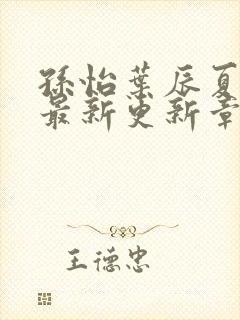 孫怡葉辰夏
最新更新章
王德忠